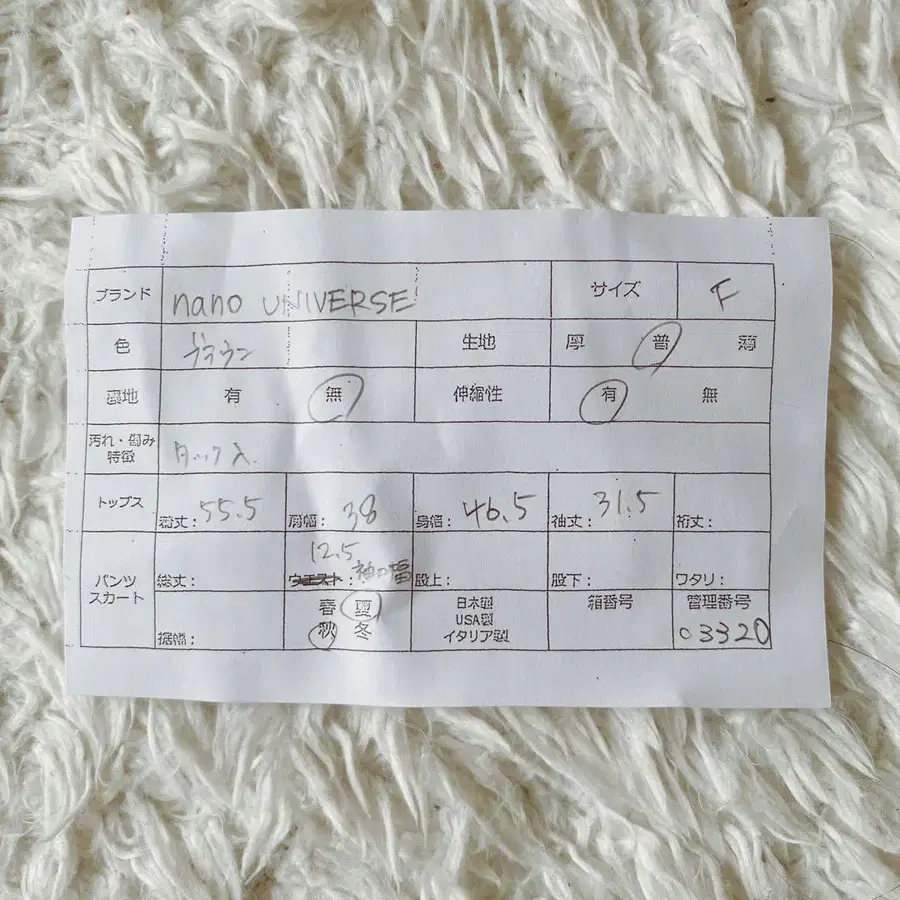 ブランド nano UNIVERSE サイズ F
色 ブラウン 生地 厚 普 薄
裏地 有 無 伸縮性 有 無
汚れ・傷み
特徴 タック入
トップス 着丈：55.5 肩幅：38 身幅：46.5 袖丈：31.5 裄丈：
12.5
パンツ
スカート 総丈： ウエスト：袖口幅 股上： 股下： ワタリ：
裾幅： 春 夏
秋 冬
日本製
USA製
イタリア製
箱番号 管理番号
03320